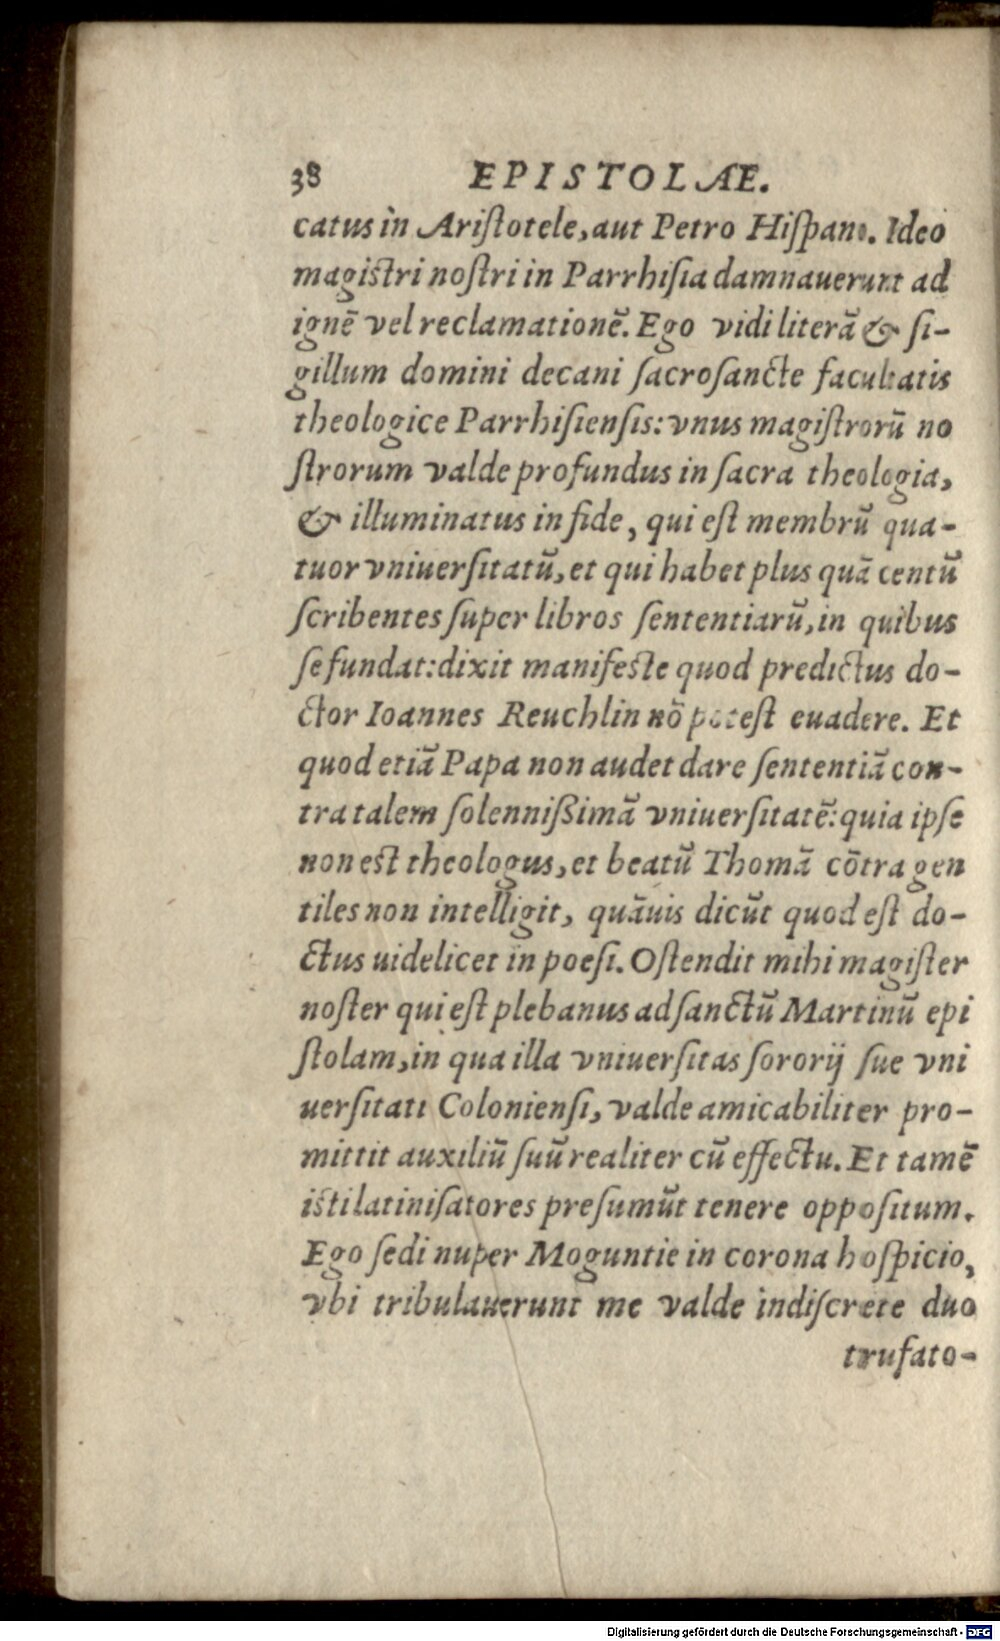 38 EPISTOLÆ.
catus in Ariſtotele, aut Petro Hiſpano. Ideo
magiſtri noſtri in Parrhiſia damnauerunt ad
ignē vel reclamationē. Ego vidi literā & ſi-
gillum domini decani ſacroſancte facultatis
theologice Parrhiſienſis: vnus magiſtrorū no
ſtrorum valde profundus in ſacra theologia,
& illuminatus in fide, qui eſt membrū qua-
tuor vniuerſitatū, et qui habet plus quā centū
ſcribentes ſuper libros ſententiarū, in quibus
ſe fundat: dixit manifeſte quod predictus do-
ctor Ioannes Reuchlin nō poteſt euadere. Et
quod etiā Papa non audet dare ſententiā con-
tra talem ſolennißimā vniuerſitatē: quia ipſe
non eſt theologus, et beatū Thomā cōtra gen
tiles non intelligit, quāuis dicūt quod eſt do-
ctus uidelicet in poeſi. Oſtendit mihi magiſter
noſter qui eſt plebanus ad ſanctū Martinū epi
ſtolam, in qua illa vniuerſitas ſororij ſue vni
uerſitati Colonienſi, valde amicabiliter pro-
mittit auxiliū ſuū realiter cū effectu. Et tamē
iſti latiniſatores preſumūt tenere oppoſitum.
Ego ſedi nuper Moguntie in corona hoſpicio,
vbi tribulauerunt me valde indiſcrete duo
trufato-
Digitalisierung gefördert durch die Deutsche Forschungsgemeinschaft - DFG